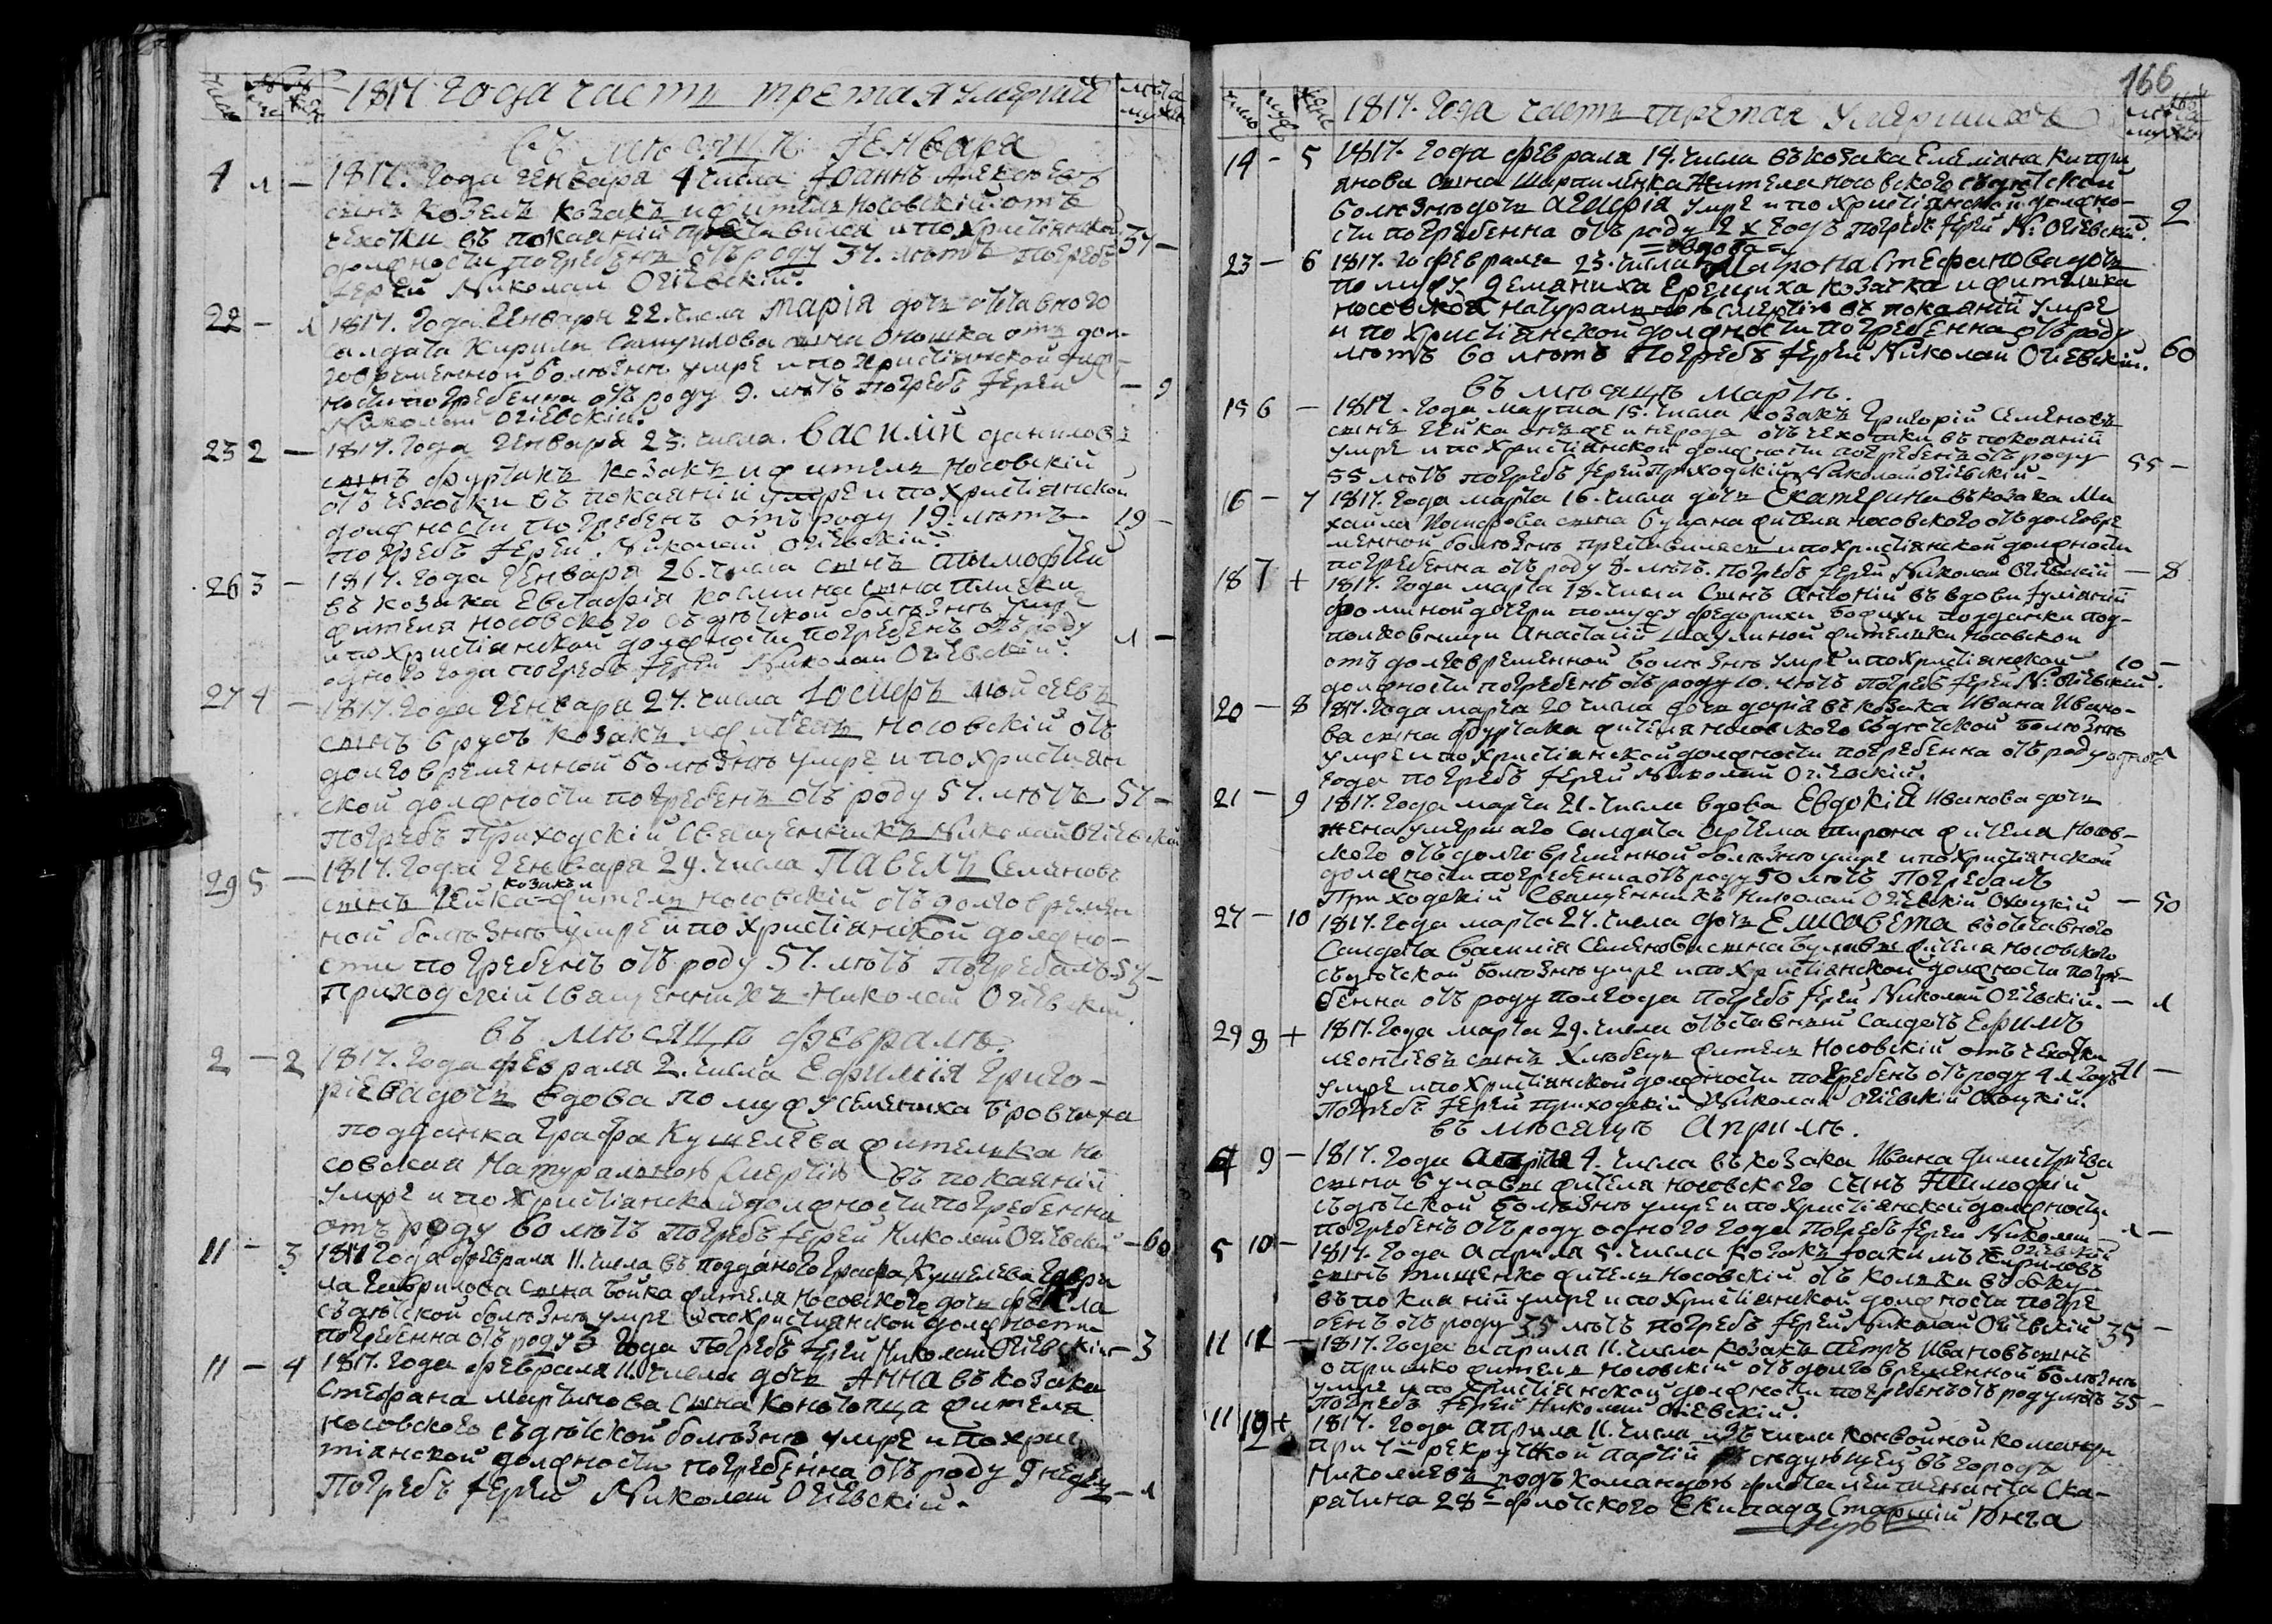 1817 года часть третая умерший
въ месяцѣ Іенваря
4 1 — 1817. года Генваря 4 числа Іоаннъ Алексѣевъ
сынъ Козелъ козакъ и житель Носовскій отъ
чехотки въ покаяніи преставился и по христіянской
должности погребенъ отъ роду 37. лѣтъ погребъ 37 —
Іерей Николай Огіевскій.
22 — 1 1817. года Генваря 22. числа Марія дочь отставного
салдата Кирила Самуилова сына Оношка отъ дол-
говременной болѣзнѣ умре и по христіянской долж-
ности погребенна отъ роду 9. лѣтъ погребъ Іерей — 9
Николай Огіевскій.
23 2 — 1817. года Генваря 23. числа. Василій Даниловъ
сынъ Фурчакъ козакъ и житель Носовскій
отъ чехотки въ покаяніи умре и по христіянской
должности погребенъ отъ роду 19. лѣтъ 19 —
погребъ Іерей Николай Огіевскій.
26 3 — 1817. года Генваря 26. числа сынъ Тимофей
въ козака Евстафія Космина сына
жителя Носовского съ дѣтской болѣзнѣ умре
и по христіянской должности погребенъ отъ роду 1 —
одного года погребъ Іерей Николай Огіевскій.
27 4 — 1817. года Генваря 27. числа Іосифъ Мойсеевъ
сынъ Брусъ козакъ и житель Носовскій отъ
долговременной болѣзнѣ умре и по христіян
ской должности погребенъ отъ роду 57. лѣтъ 57 —
погребъ приходскій священникъ Николай Огіевскій
29 5 — 1817. года Генваря 29. числа Павелъ Семеновъ
козакъ и
сынъ Гейка житель Носовскій отъ долговремен
ной болѣзнѣ умре и по христіянской должно-
сти погребенъ отъ роду 57. лѣтъ погребалъ 57 —
приходскій священникъ Николай Огіевскій.
въ месяцѣ Февралѣ.
2 — 2 1817. года Февраля 2. числа Ефимія Григо-
ріева дочь вдова по мужу Семениха Бровчиха
подданка графа Кушелева жителька Но
совская натуральною смертію въ покаяніи
умре и по христіянской должности погребенна
отъ роду 60 лѣтъ погребъ Іерей Николай Огіевскій — 60
11 — 3 1817 года Февраля 11. числа въ подданого графа Кушелева Гаври
ла Гаврилова сына Бойка жителя Носовского дочь Фекла
съ дѣтской болѣзнѣ умре и по христіянской должности
погребенна отъ роду 3 года погребъ Іерей Николай Огіевскій — 3
11 — 4 1817. года Февраля 11. числа дочь Анна въ козака
Стефана Мартинова сына Конотопца жителя
Носовского съ дѣтской болѣзнѣ умре и по хрис
тіянской должности погребенна отъ роду 9 недель — 1
погребъ Іерей Николай Огіевскій.
166
1817. года часть третая умершихъ
14 — 5 1817. года Февраля 14. числа въ козака Емеліяна Кипри
янова сына жителя Носовского съ дѣтской
болѣзнѣ дочь Агафія умре и по христіянской должно-
сти погребенна отъ роду 2 х годъ погребъ Іерей Н: Огіевскій. 2
= вдова =
23 — 6 1817. го Февраля 23. числа Матрона Стефанова дочь
по мужу Демяниха Еремиха козачка и жителька
Носовская натуральною смертію въ покаяніи умре
и по христіянской должности погребенна отъ роду
лѣтъ 60 лѣтъ погребъ Іерей Николай Огіевскій. 60
въ месяцѣ Мартѣ.
15 6 — 1817. года Марта 15. числа козакъ Григорій Семеновъ
сынъ Гейка отъ чехотки въ покаяніи
умре и по христіянской должности погребенъ отъ роду
55 лѣтъ погребъ Іерей приходскій Николай Огіевскій — 55 —
16 — 7 1817. года Марта 16. числа дочь Екатерина въ козака Ми
хайла Иосифова сына Буцана жителя Носовского отъ долговре
менной болѣзнѣ преставилась и по христіянской должности
погребенна отъ роду 8. лѣтъ. погребъ Іерей Николай Огіевскій — 8
18 7 + 1817. года Марта 18. числа сынъ Антоній въ вдови Іуліяніи
Фоминой дочери по мужу Федорихи Божихи подданки под-
полковници Анастасіи жительки Носовской
отъ долговременной болѣзнѣ умре и по христіянской 10 —
должности погребенъ отъ роду 10. лѣтъ погребъ Іерей Н: Огіевскій.
20 — 8 1817. года Марта 20 числа дочь Дарія въ козака Ивана Ивано-
ва сына Фурчака жителя Носовского съ дѣтской болѣзнѣ
умре и по христіянской должности погребенна отъ роду одного 1
года погребъ Іерей Николай Огіевскій.
21 — 9 1817. года Марта 21. числа вдова Евдокія Иванова дочь
жена умершаго салдата Артема Тирона жителя Носов-
ского отъ долговременной болѣзнѣ умре и по христіянской
должности погребенна отъ роду 50 лѣтъ погребалъ
приходскій священникъ Николай Огіевскій — 50
27 — 10 1817. года Марта 27. числа дочь Елисавета въ отставного
салдата Василія Семенова сына Булавы жителя Носовского
съ дѣтской болѣзнѣ умре и по христіянской должности погре-
бенна отъ роду полгода погребъ Іерей Николай Огіевскій. — 1
29 8 + 1817. года Марта 29. числа отъставный салдатъ Ефимъ
Леонтіевъ сынъ Хлѣбець житель Носовскій отъ чехотки
умре и по христіянской должности погребенъ отъ роду 41 годъ 41 —
погребъ Іерей приходскій Николай Огіевскій.
въ месяцѣ Априлѣ.
4 9 — 1817. года Априля 4. числа въ козака Ивана Димитріева
сына Булавы жителя Носовского сынъ Тимофій
съ дѣтской болѣзнѣ умре и по христіянской должности
погребенъ отъ роду одного года погребъ Іерей Николай 1 —
Огіевскій
5 10 — 1817. года Априля 5. числа козакъ Іоакимъ Кириловъ
сынъ Тищенко житель Носовскій отъ колики въ боку
въ покаяніи умре и по христіянской должности погре
бенъ отъ роду 35 лѣтъ погребъ Іерей Николай Огіевскій 35 —
11 11 — 1817. года Априля 11. числа козакъ Петръ Ивановъ сынъ
Опришко житель Носовскій отъ долговременной болѣзнѣ
умре и по христіянской должности погребенъ отъ роду лѣтъ 35 —
погребъ Іерей Николай Огіевскій.
11 12 + 1817. года Априля 11. числа изъ числа конвойной команди
при рекрутской партіи следующей въ городъ
Николаевъ подъ командою флота лейтенанта Ска-
ратина 28 флотского екипажа старшій юнга